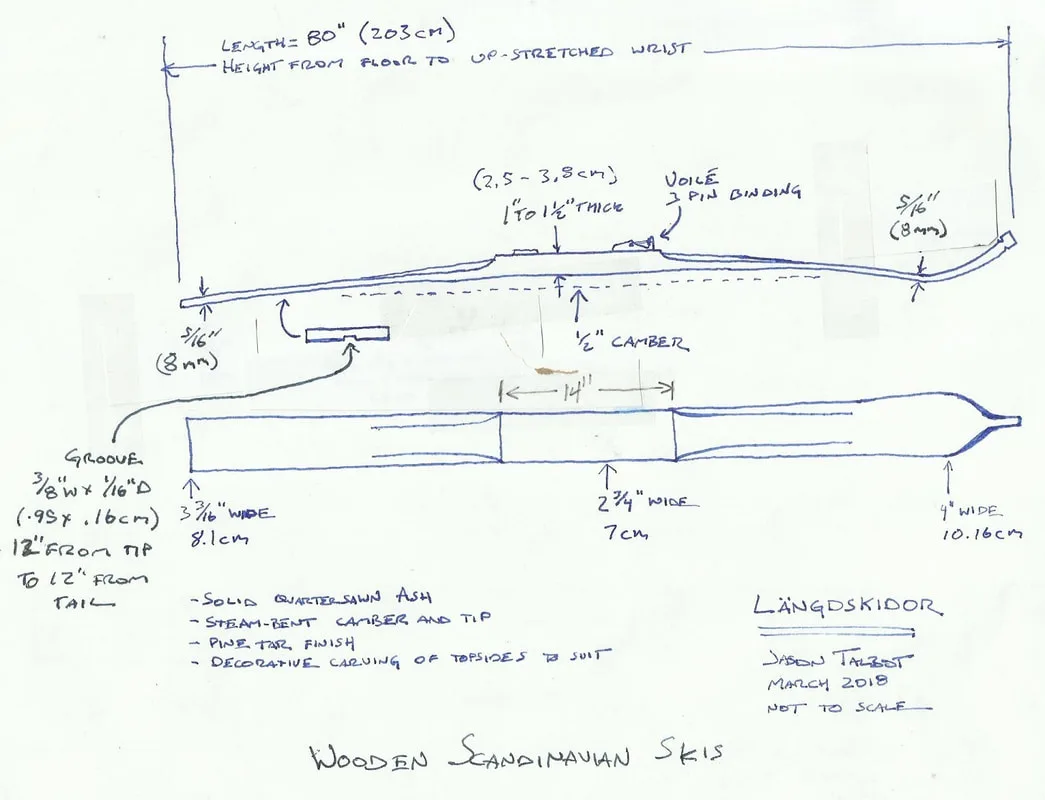 LENGTH = 80" (203cm)
HEIGHT FROM FLOOR TO UP-STRETCHED WRIST
(2,5 - 3,8cm)
1" TO 1 1/2" THICK
VOILÉ
3 PIN BINDING
5/16"
(8mm)
5/16"
(8mm)
1/2" CAMBER
14"
GROOVE
3/8"W x 1/16"D
(.95 x .16cm)
12" FROM TIP
TO 12" FROM
TAIL
3 3/16" WIDE
8.1cm
2 3/4" WIDE
7cm
4" WIDE
10.16cm
- SOLID QUARTERSAWN ASH
- STEAM-BENT CAMBER AND TIP
- PINE TAR FINISH
- DECORATIVE CARVING OF TOPSIDES TO SUIT
LÄNGDSKIDOR
JASON TALBOT
MARCH 2018
NOT TO SCALE
WOODEN SCANDINAVIAN SKIS